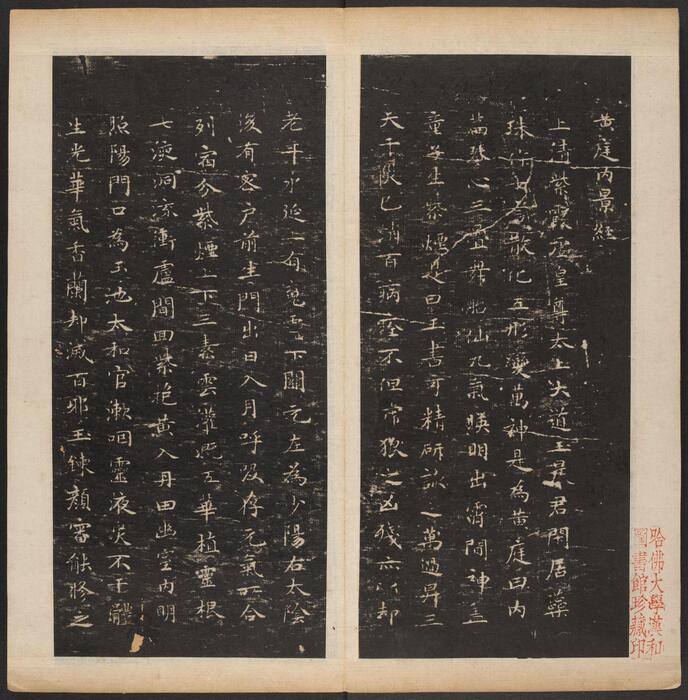 黄庭内景經
上清紫霞虛皇尊太上大道玉晨君閑居蘂
珠作七言散化五形變萬神是為黄庭曰内
篇琴心三疊舞胎仙九氣暎明出霄間神盖
童子生紫煙是曰玉書可精研詠之萬過昇三
天千灾已消百病痊不但常狼之凶殘亦以却
老年永延上有魂靈下關元左為少陽右太陰
後有密户前生門出日入月呼吸存元氣所合
列宿分紫煙上下三素雲灌溉五華植靈根
七液洞流衝廬間回紫抱黄入丹田幽室内明
照陽門口為玉池太和官漱咽靈液灾不干體
生光華氣香蘭却滅百邪玉鍊顔審能脩之
哈佛大學漢和
圖書館珍藏印